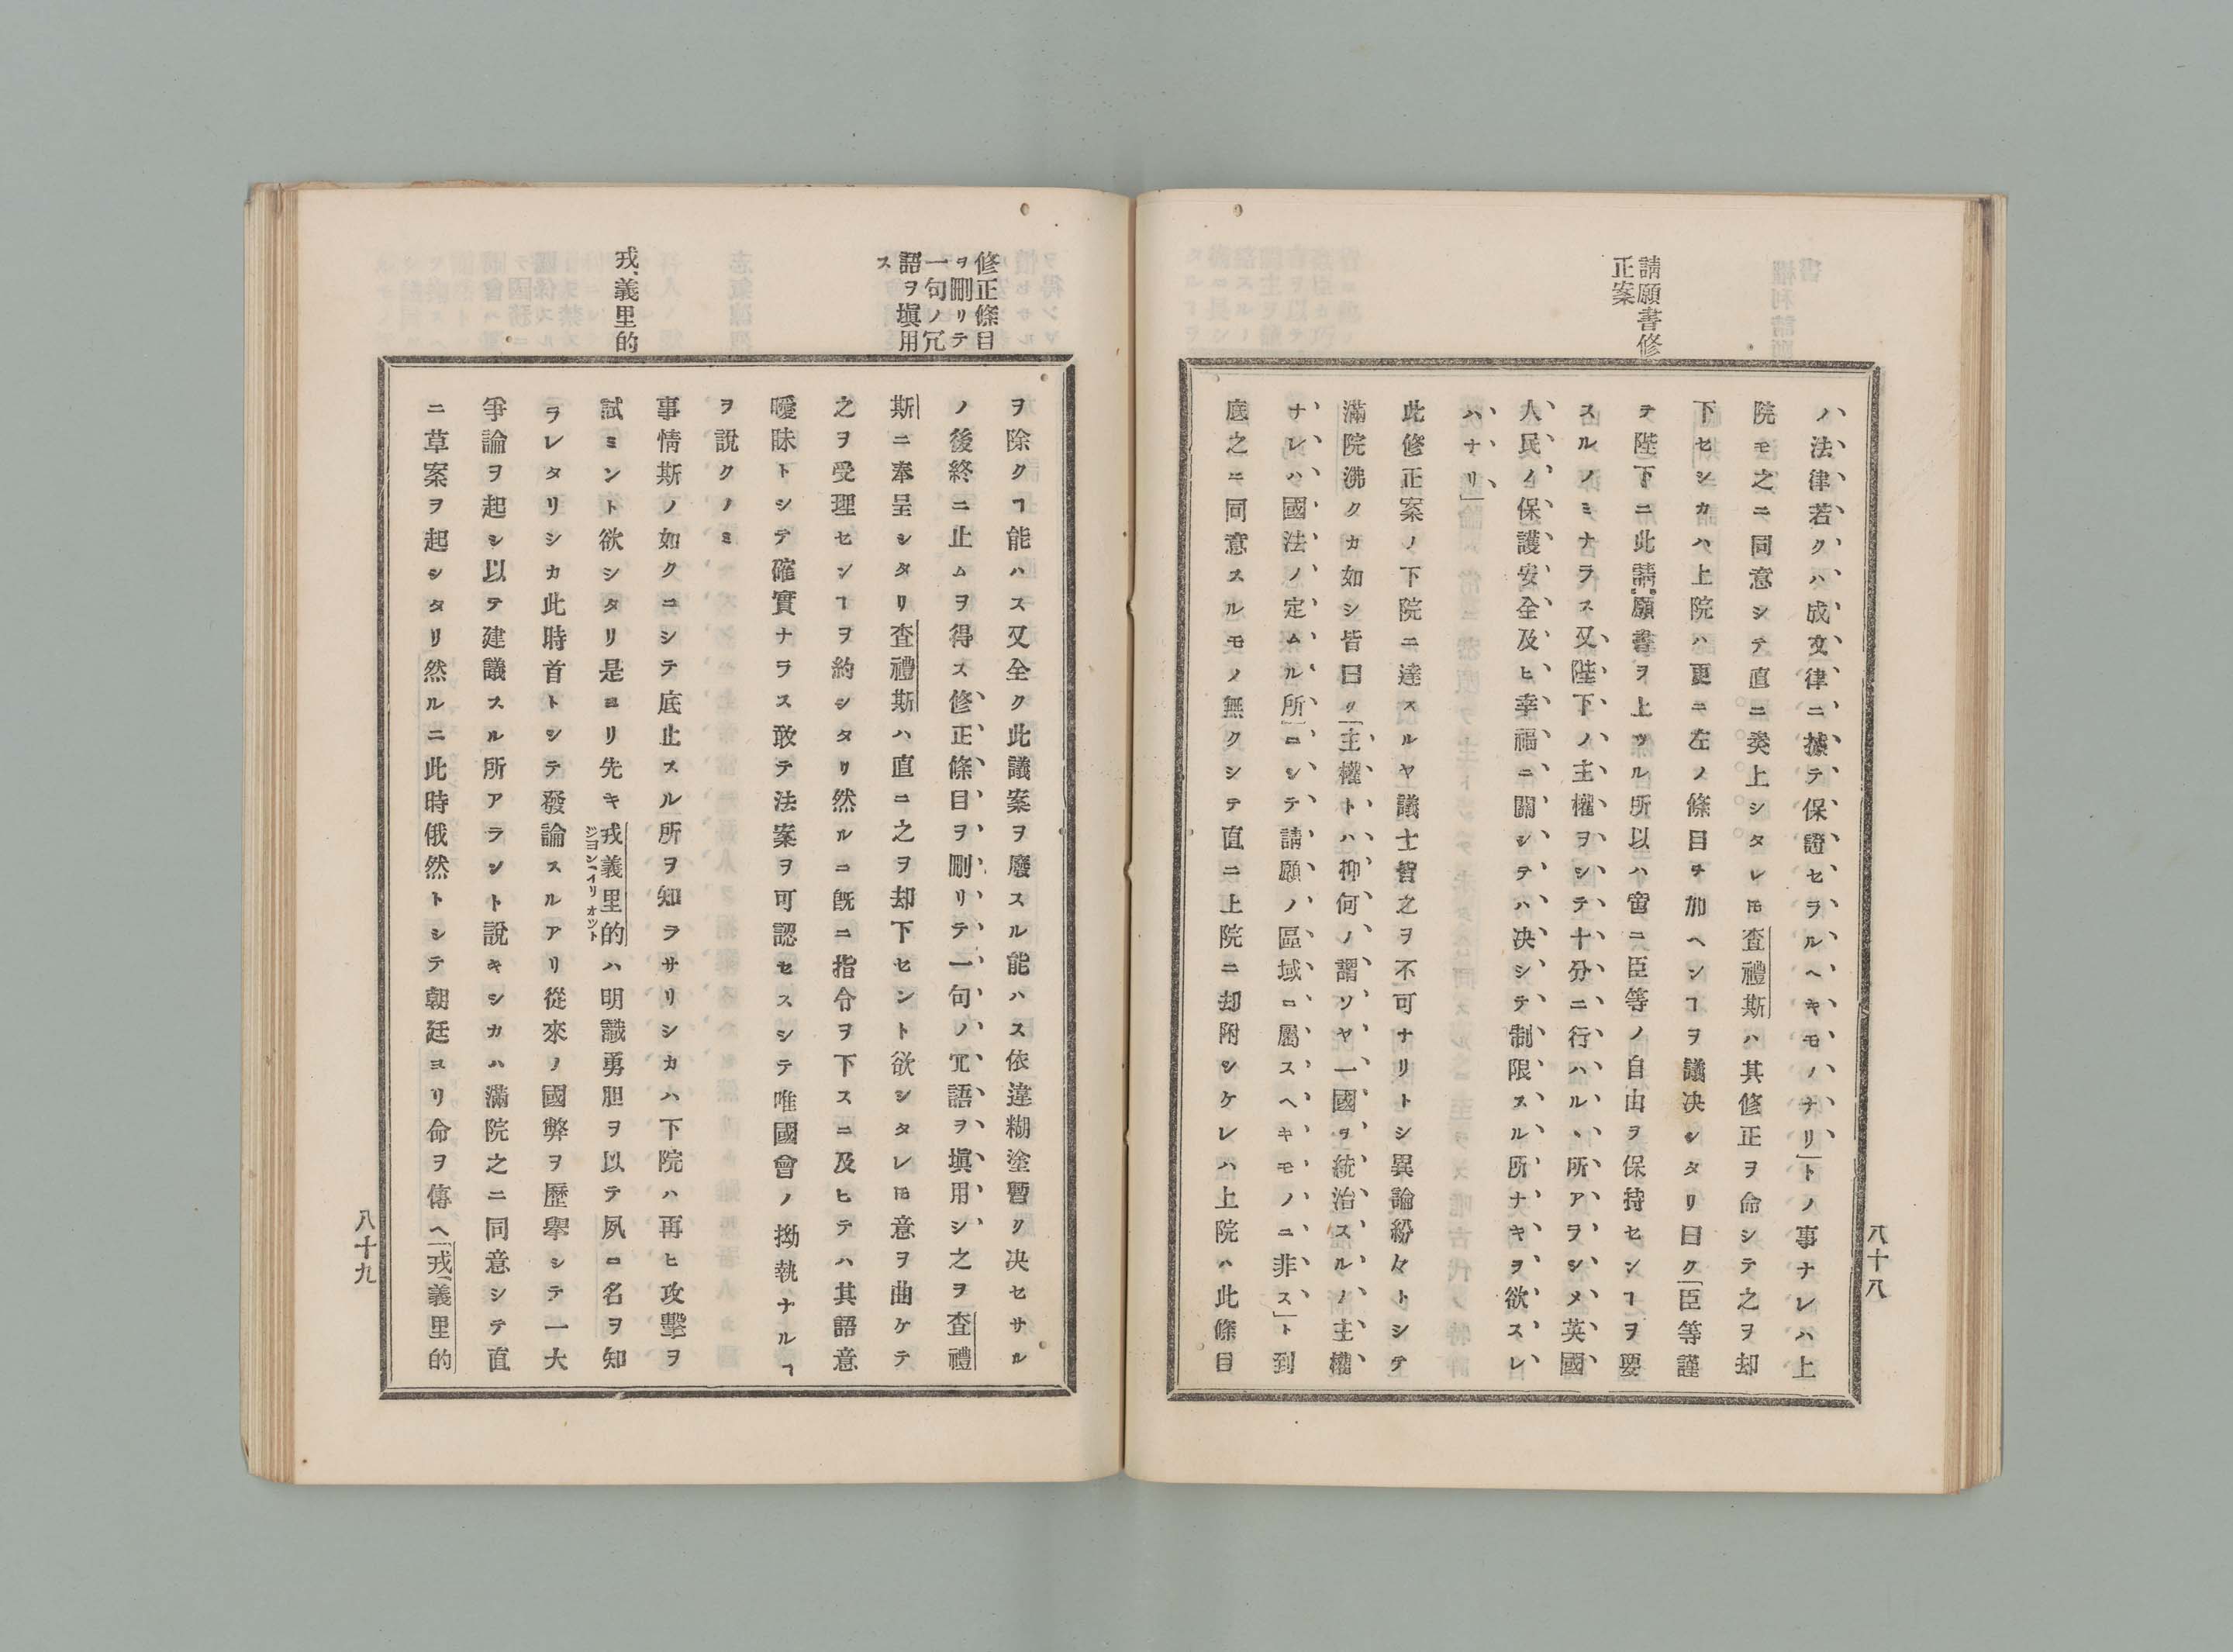 請願書修
正案
ノ法律若クハ成文律ニ據テ保證セラルヘキモノナリ」トノ事ナレハ上
院モ之ニ同意シテ直ニ奏上シタレ𪜈査禮斯ハ其修正ヲ命シテ之ヲ却
下セシカハ上院ハ更ニ左ノ條目ヲ加ヘンヿヲ議決シタリ曰ク「臣等謹
テ陛下ニ此請願書ヲ上ツル所以ハ啻ニ臣等ノ自由ヲ保持センヿヲ要
スルノミナラス又陛下ノ主權ヲシテ十分ニ行ハル、所アラシメ英國
人民ノ保護安全及ヒ幸福ニ關シテハ决シテ制限スル所ナキヲ欲スレ
ハナリ」
此修正案ノ下院ニ達スルヤ議士皆之ヲ不可ナリトシ異論紛々トシテ
滿院沸クカ如シ皆曰ク「主權トハ抑何ノ謂ソヤ一國ヲ統治スルノ主權
ナレハ國法ノ定ムル所」ニシテ請願ノ區域ニ屬スヘキモノニ非ス」ト到
底之ニ同意スルモノ無クシテ直ニ上院ニ却附シケレハ上院ハ此條目
八十八
修正條目
ヲ刪リテ
一句ノ冗
語ヲ塡用
ス
戎、義里的
ヲ除クヿ能ハス又全ク此議案ヲ廢スル能ハス依違糊塗暫ク决セサル
ノ後終ニ止ムヲ得ス修正條目ヲ刪リテ一句ノ冗語ヲ塡用シ之ヲ査禮
斯ニ奉呈シタリ査禮斯ハ直ニ之ヲ却下セント欲シタレ𪜈意ヲ曲ケテ
之ヲ受理センヿヲ約シタリ然ルニ旣ニ指令ヲ下スニ及ヒテハ其語意
曖昧トシテ確實ナラス敢テ法案ヲ可認セスシテ唯國會ノ拗執ナルヿ
ヲ說クノミ
事情斯ノ如クニシテ底止スル所ヲ知ラサリシカハ下院ハ再ヒ攻擊ヲ
試ミント欲シタリ是ヨリ先キ戎義里的ハ明識勇胆ヲ以テ夙ニ名ヲ知
ジヨン、イリオツト
ラレタリシカ此時首トシテ發論スルアリ從來ノ國弊ヲ歷擧シテ一大
爭論ヲ起シ以テ建議スル所アラント說キシカハ滿院之ニ同意シテ直
ニ草案ヲ起シタリ然ルニ此時俄然トシテ朝廷ヨリ命ヲ傳ヘ「戎、義里的
八十九